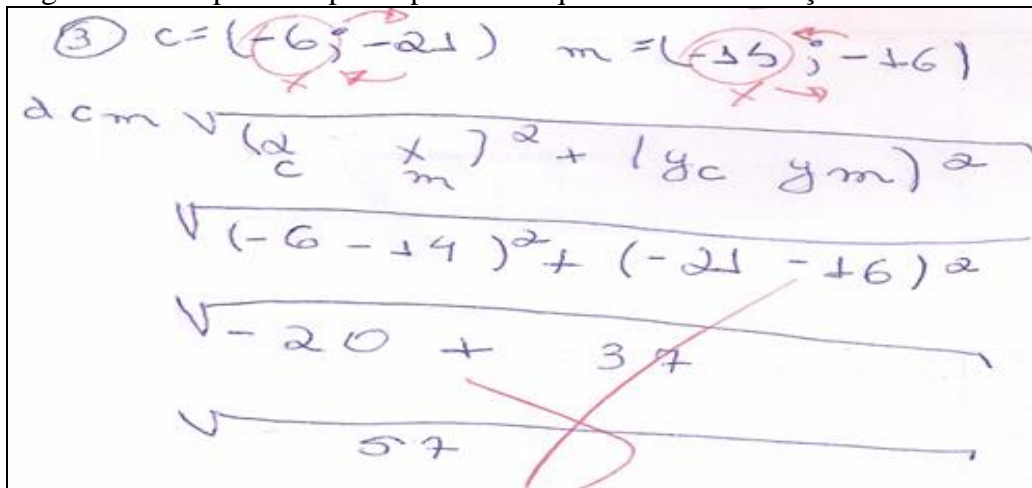 ③ c=(-6; -21) m=(-14; -16)
x x
d c m √(x c x m)² + (yc ym)²
√(-6 -14)² + (-21 -16)²
√-20 + 37
√57